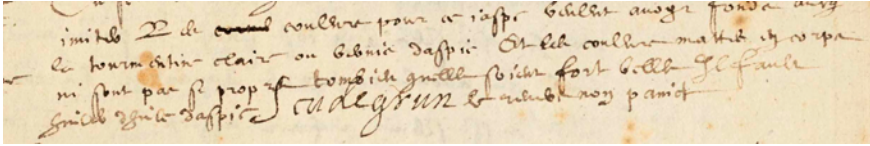 imiter Et les couleurs pour ce jaspe veulent avoyr fonds avecq
la tourmentine claire ou vernis daspic Et les couleurs mattes en corps
ni sont pas si propres combien quelles soient fort belles Il fault
huiler dhuile daspic le verre non painct